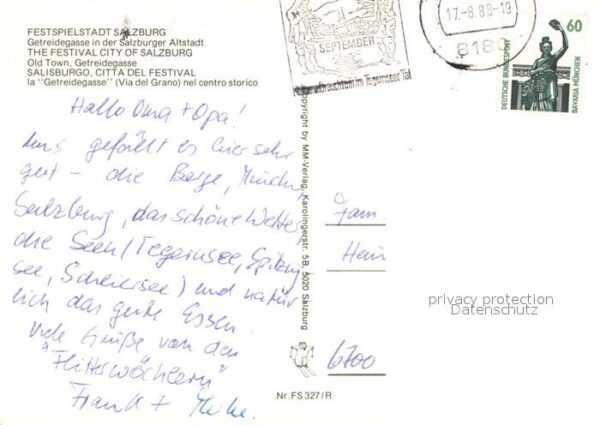 FESTSPIELSTADT SALZBURG
Getreidegasse in der Salzburger Altstadt
THE FESTIVAL CITY OF SALZBURG
Old Town, Getreidegasse
SALISBURGO, CITTA DEL FESTIVAL
la "Getreidegasse" (Via del Grano) nel centro storico
Hallo Oma + Opa!
Uns gefällt es hier sehr
gut - die Berge, München,
Salzburg, das schöne Wetter
die Seen (Tegernsee, Spitzing
see, Schliersee) und natür
lich das gute Essen.
Viele Grüße von den
"Flitterwöchlern"
Frank +
Copyright by MM-Verlag, Karolingerstr. 5B, 5020 Salzburg
Nr. FS 327/R
SEPTEMBER
im Tegernseer Tal
17.-8.88-19
8180
60
DEUTSCHE BUNDESPOST
BAVARIA MÜNCHEN
Fam.
Hein
6700
privacy protection
Datenschutz